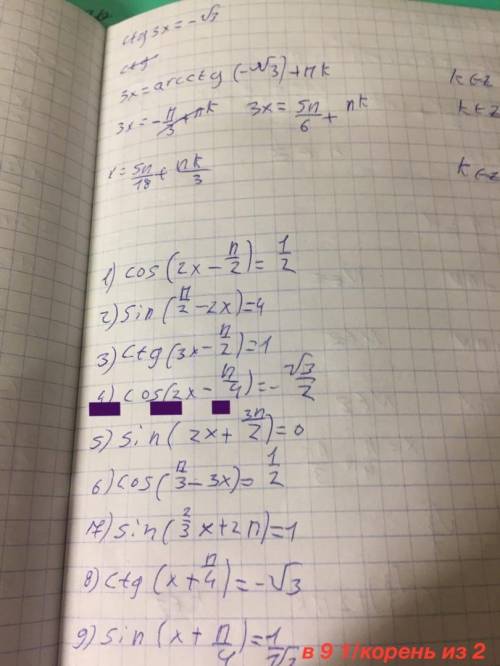 ctg 3x = -√3
ctg
3x = arcctg (-√3) + πk k∈z
3x = -π/3 + πk 3x = 5π/6 + πk k∈z
x = 5π/18 + πk/3 k∈z
1) cos(2x - π/2) = 1/2
2) sin(π/2 - 2x) = 4
3) ctg(3x - π/2) = 1
4) cos(2x - π/4) = -√3/2
5) sin(2x + 3π/2) = 0
6) cos(π/3 - 3x) = 1/2
7) sin(2/3 x + 2π) = 1
8) ctg(x + π/4) = -√3
9) sin(x + π/4) = 1/√2
в 9 1/корень из 2